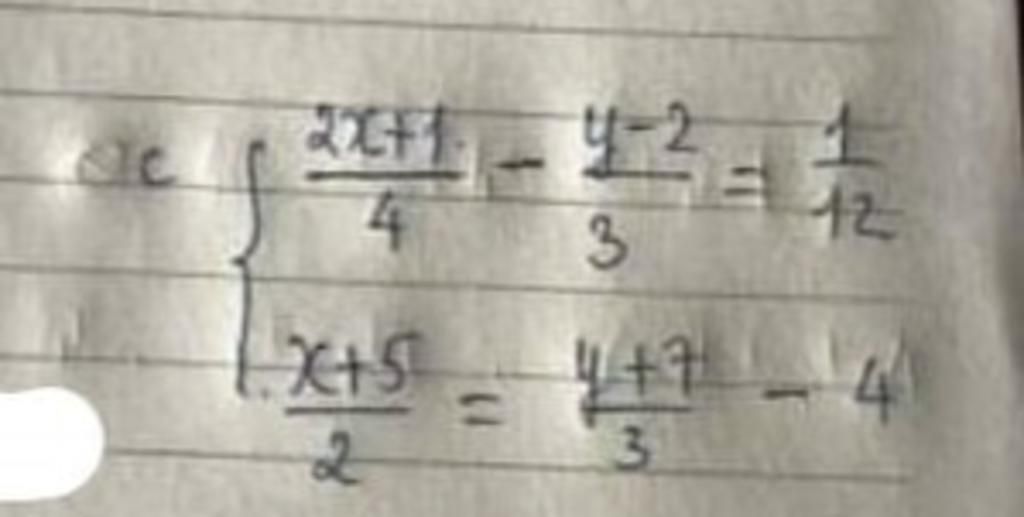 c { (2x+1)/4 - (y-2)/3 = 1/12
(x+5)/2 = (y+7)/3 - 4